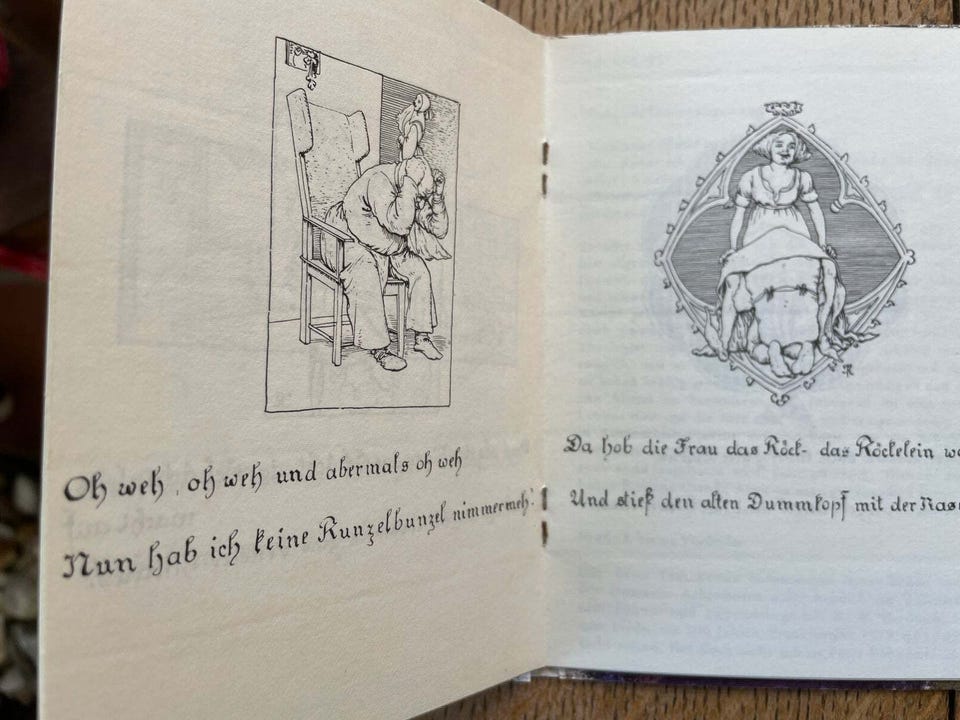 Oh weh, oh weh und abermals oh weh
Nun hab ich keine Runzelbunzel nimmermeh!
Da hob die Frau das Röck- das Röckelein
Und stieß den alten Dummkopf mit der